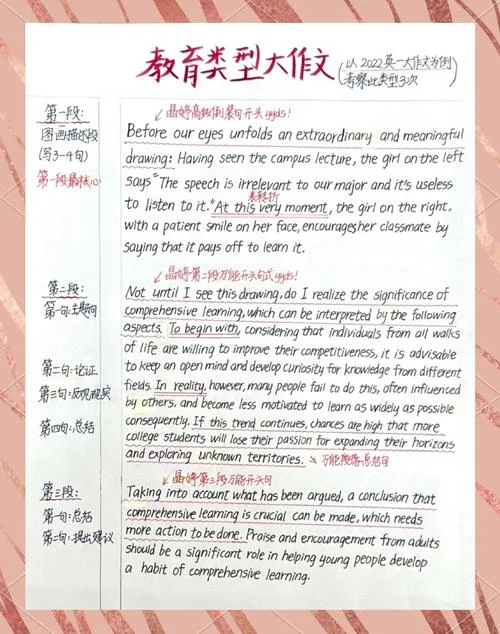 教育类型大作文
(以2022英一大作文为例
考察此类型3次)
第一段:
图画描述段
(写3-4句)
第一段最核心
↙晶婷高级倒装句开头yyds!
Before our eyes unfolds an extraordinary and meaningful
drawing: Having seen the campus lecture, the girl on the left
says "The speech is irrelevant to our major and it's useless
表转折
to listen to it." At this very moment, the girl on the right,
with a patient smile on her face, encourages her classmate by
saying that it pays off to learn it.
第二段:
第一句:主题句
第二句:论证
第三句:反观现实
第四句:总结
↙晶婷第二段万能开头句式yyds!
Not until I see this drawing, do I realize the significance of
comprehensive learning, which can be interpreted by the following
aspects. To begin with, considering that individuals from all walks
of life are willing to improve their competitiveness, it is advisable
to keep an open mind and develop curiosity for knowledge from different
fields. In reality, however, many people fail to do this, often influenced
by others, and become less motivated to learn as widely as possible
consequently. If this trend continues, chances are high that more
college students will lose their passion for expanding their horizons
and exploring unknown territories. ↘万能段落总结句
第三段:
第一句:总结
第二句:提出建议
↙晶婷第三段万能开头句
Taking into account what has been argued, a conclusion that
comprehensive learning is crucial can be made, which needs
more action to be done. Praise and encouragement from adults
should be a significant role in helping young people develop
a habit of comprehensive learning.